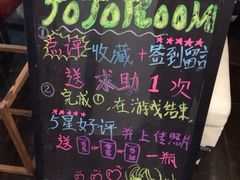 JOJOROOM
① 点评 收藏+签到留言
送 求助1次
② 完成①,在游戏结束
5星好评 并上传照片
送 或 或 一瓶